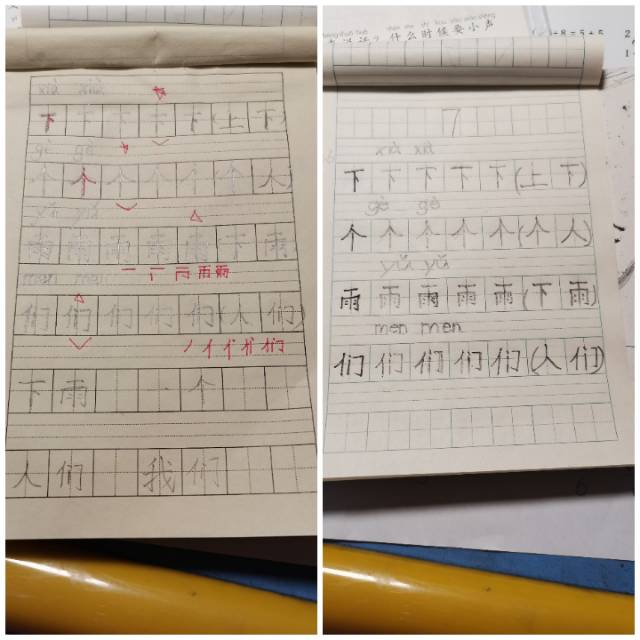 xià xià
下 下 下 下 下 (上 下)
gè gè
个 个 个 个 个 (个 人)
yǔ yǔ
雨 雨 雨 雨 雨 (下 雨)
men men
们 们 们 们 们 (人 们)
下 雨 一 个
人 们 我 们
什么时候要小声
7
xià xià
下 下 下 下 下 (上 下)
gè gè
个 个 个 个 个 (个 人)
yǔ yǔ
雨 雨 雨 雨 雨 (下 雨)
men men
们 们 们 们 们 (人 们)